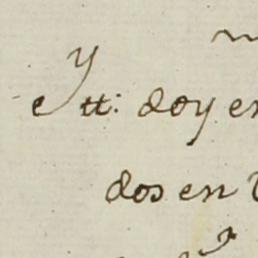 Ytt: doy en
dos en